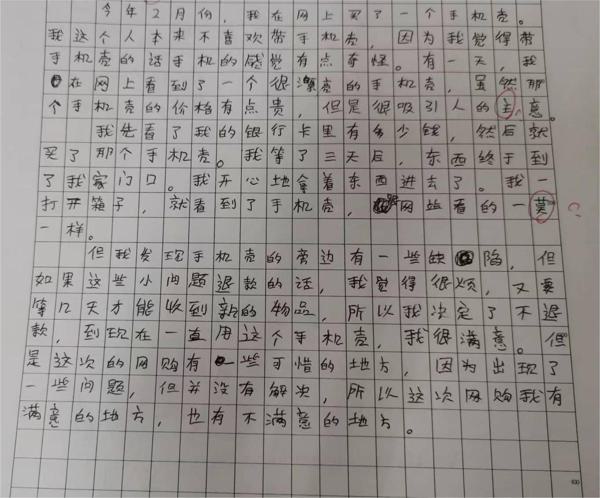 今年2月份，我在网上买了一个手机壳。
我这个人本来不喜欢带手机壳，因为我觉得带
手机壳的话手机的感觉有点奇怪。有一天，我
在网上看到了一个很漂亮的手机壳，虽然那
个手机壳的价格有点贵，但是很吸引人的主意。
我先看了我的银行卡里有多少钱，然后就
买了那个手机壳。我等了三天后，东西终于到
了我家门口。我开心地拿着东西进去了。我一
打开箱子，就看到了手机壳，跟网站看的一莫
一样。
但我发现手机壳的旁边有一些缺陷，但
如果这些小问题退款的话，我觉得很烦，又要
等几天才能收到新的物品，所以我决定了不退
款，到现在一直用这个手机壳，我很满意。但
是这次的网购有一些可惜的地方，因为出现了
一些问题，但并没有解决，所以这次网购我有
满意的地方，也有不满意的地方。
400